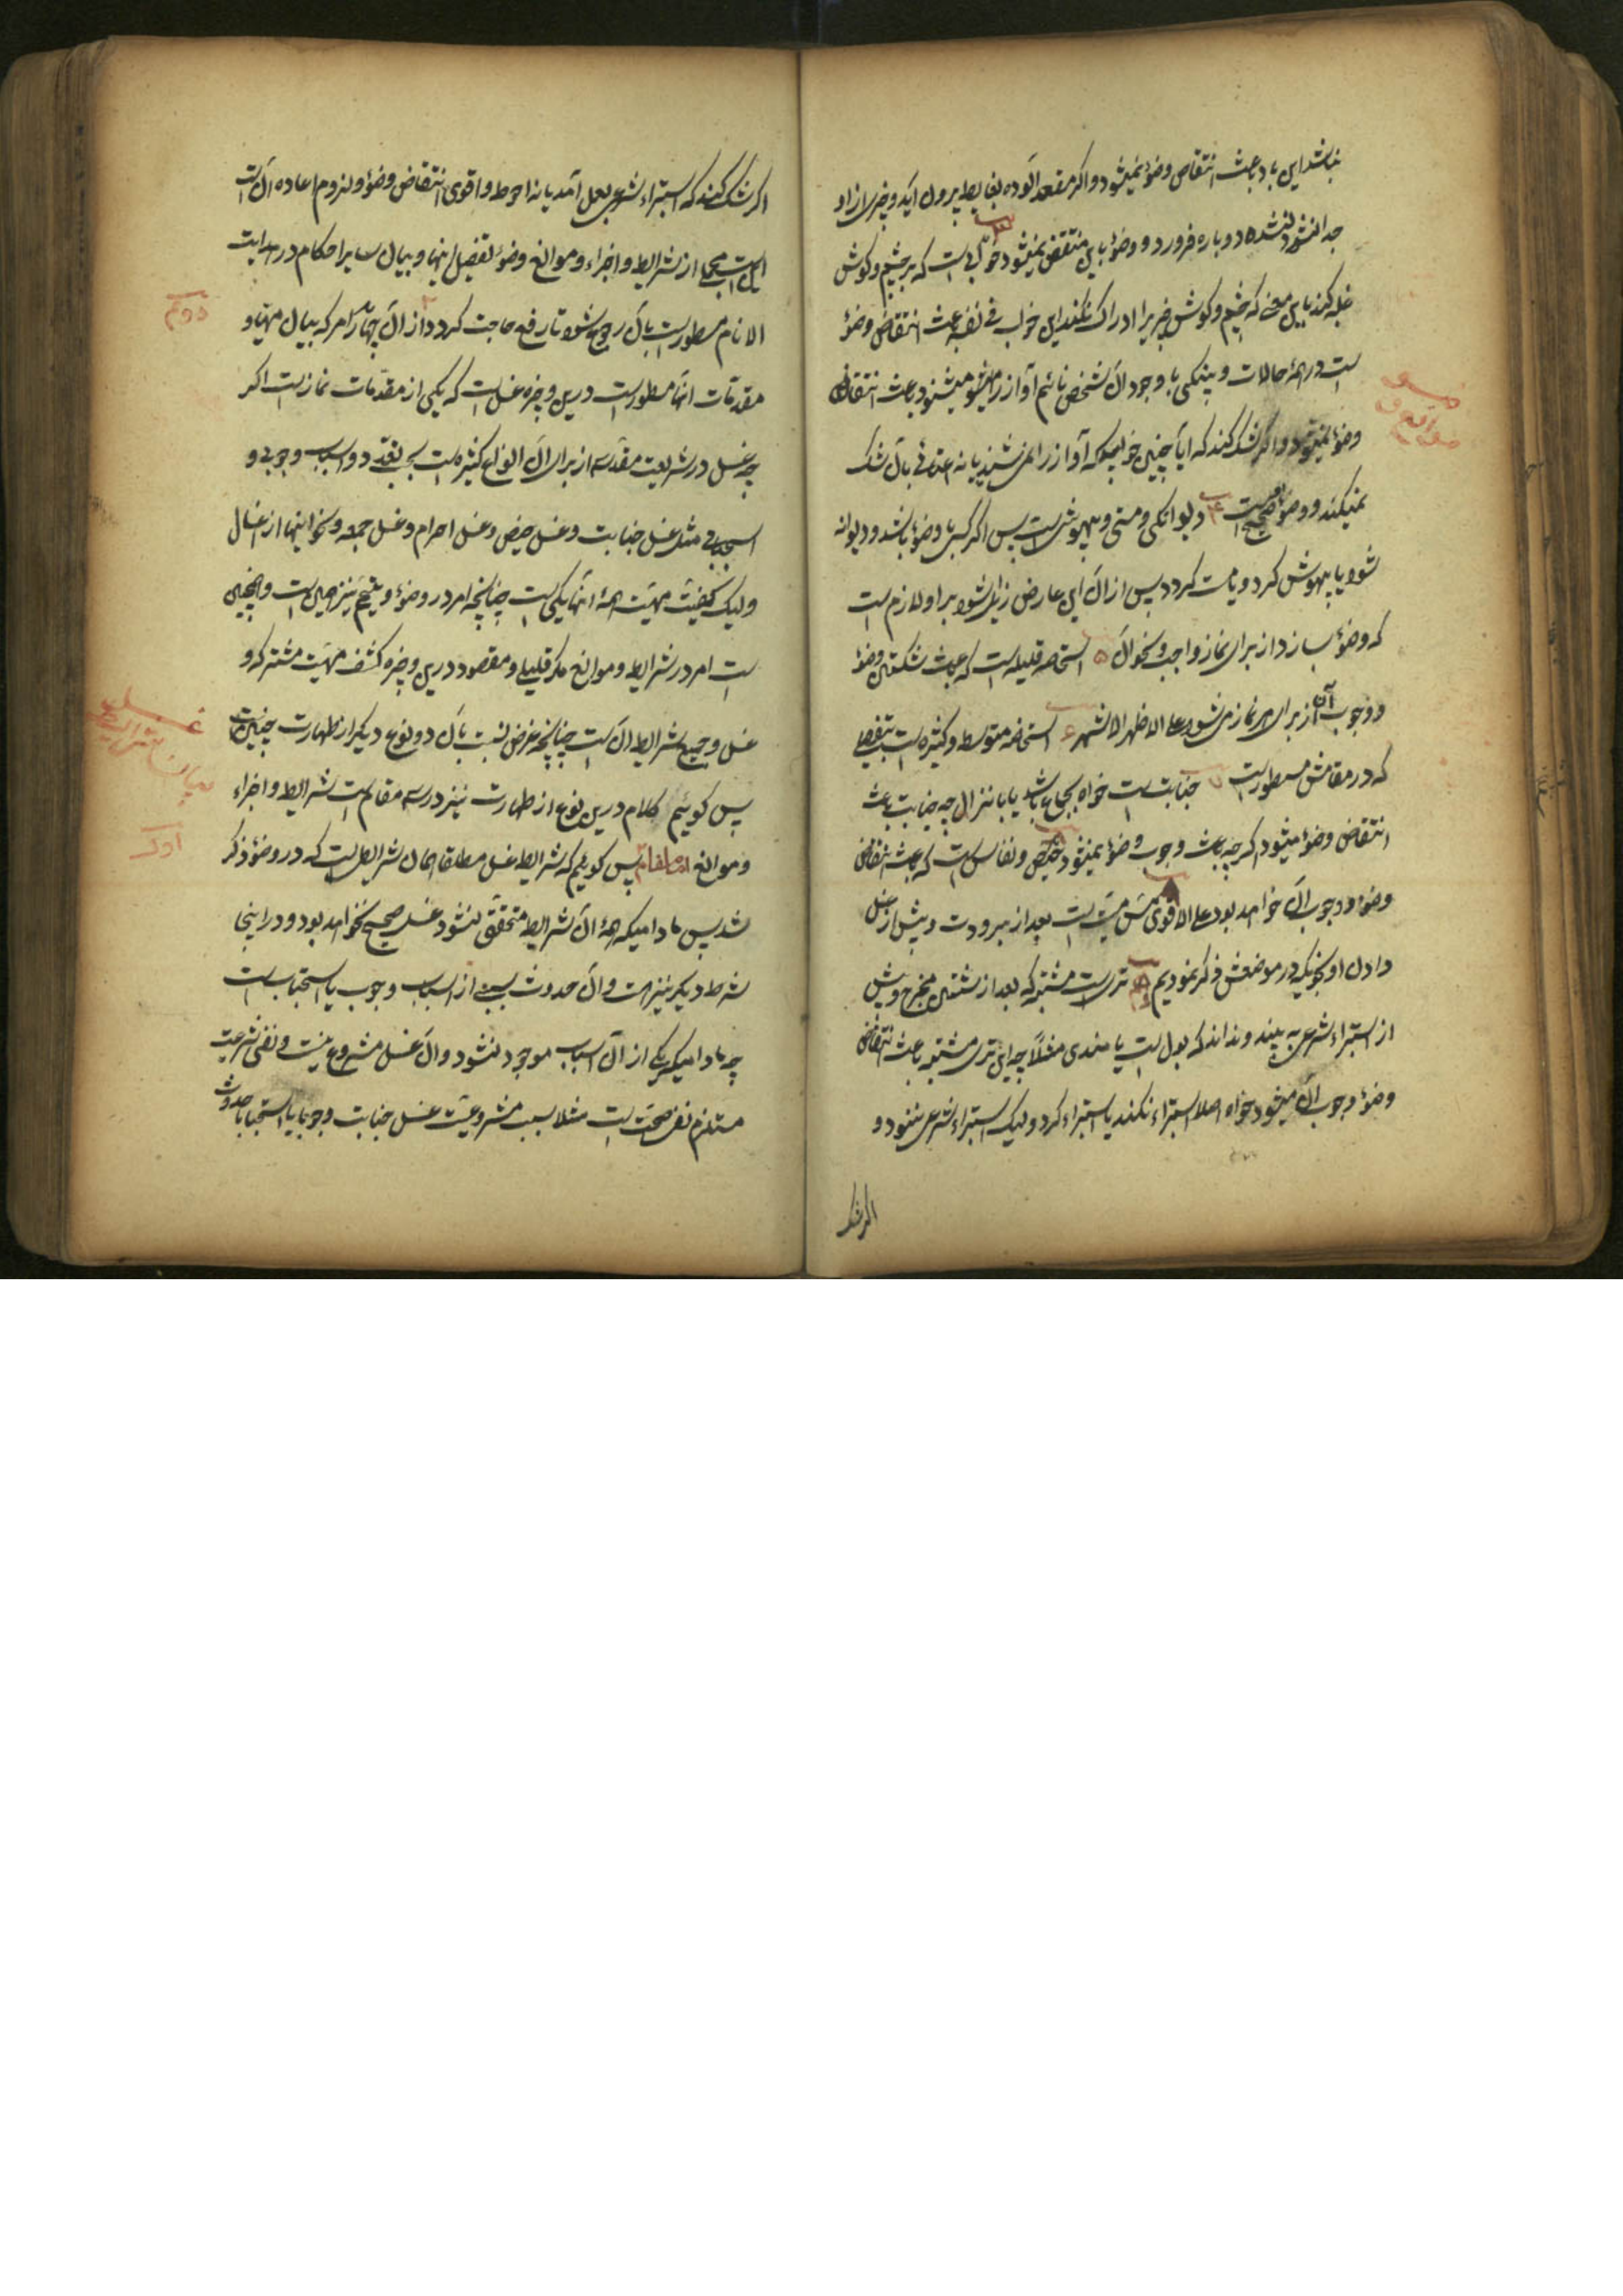 نباشد این باد باعث انتقاض وضوء نمیشود و اگر مقعد آلوده بغایط بیرون آید و چیزی از او
جدا نشده دوباره فرو رود و وضوء باین منتقض نمیشود خوابی است که بر چشم و گوش
غلبه کند باین معنی که چشم و گوش چیزیرا ادراک نکند این خواب فی نفسه باعث انتقاض وضوء
است در همهٔ حالات و پینکی با وجود آن شخص نائم آواز را میشنود باعث انتقاض
وضوء نمیشود و اگر شک کند که آیا چنین خوابیده که آواز را نمی شنید یا نه اعتنائی بآن شک
نمیکند و وضوء صحیح است ۴ دیوانگی و مستی و بیهوشی است پس اگر کسی با وضوء باشد و دیوانه
شود یا بیهوش گردد یا مست گردد پس از آن این عارض زایل شود بر او لازم است
که وضوء بسازد از برای نماز واجب و نحو آن ۵ استحاضه قلیله است که باعث شکستن وضوء
و وجوب آن از برای هر نماز میشود علی الاظهر الاشهر ۶ استحاضه متوسط و کثیره است بتفصیلی
که در مقامش مسطور است ۷ جنابت است خواه بجماع باشد یا بانزال چه جنابت باعث
انتقاض وضوء میشود اگرچه باعث وجوب وضوء نمیشود حیض و نفاس است که باعث انتقاض
وضوء و وجوب آن خواهد بود علی الاقوی مس میت است بعد از برودت و پیش از غسل
دادن او بنحویکه در موضعش ذکر نمودیم تری است مشتبه که بعد از شستن مخرج و پیش
از استبراء شرعی به بیند و نداند که بول است یا مذی مثلاً چه این تری مشتبه باعث انتقاض
وضوء و وجوب آن میشود خواه اصلا استبراء نکند یا استبراء کرد و لیک استبراء شرعی ننمود و
اگر شک
اگر شک کند که استبراء شرعی بعمل آمد یا نه احوط و اقوی انتقاض وضوء و لزوم اعاده آن است
این است مجملی از شرایط و اجزاء و موانع وضوء تفصیل اینها و بیان سایر احکام در هدایت
الانام مسطور است بآن رجوع شود تا رفع حاجت گردد از آن چهار امر که بیان مهیات و
مقدمات آنها مسطور است درین وجیزه غسل است که یکی از مقدّمات نماز است اگر
چه غسل در شریعت مقدّسه از برای آن انواع کثیره است بحسب تعدد اسباب وجوبی و
استحبابی مثل غسل جنابت و غسل حیض و غسل احرام و غسل جمعه و نحو اینها از اغسال
و لیک کیفیّت مهیّت همهٔ آنها یکی است چنانچه امر در وضوء و تیمّم نیز همین است و همچنین
است امر در شرایط و موانع مگر قلیلی و مقصود درین وجیزه کشف مهیّت مشترکه و
غسل و جمیع شرایط آن است چنانچه غرض نسبت بآن دو نوع دیگر از طهارت چنین است
پس گوئیم کلام درین نوع از طهارت نیز در سه مقام است شرایط و اجزاء
و موانع اما مقام پس گوئیم که شرایط غسل مطلقا همان شرایطی است که در وضوء ذکر
شد پس مادامیکه همهٔ آن شرایط متحقق نشود غسل صحیح نخواهد بود و در اینجا
شرط دیگر نیز هست و آن حدوث سببی از اسباب وجوب یا استحباب است
چه مادامیکه یکی از آن اسباب موجود نشود و آن غسل مشروع نیست و نفی شرعیت
مستلزم نفی صحت است مثلا سبب مشروعیت غسل جنابت وجوبا یا استحبابا حدوث
دوّم
غسل
بیان شرایط
اوّل